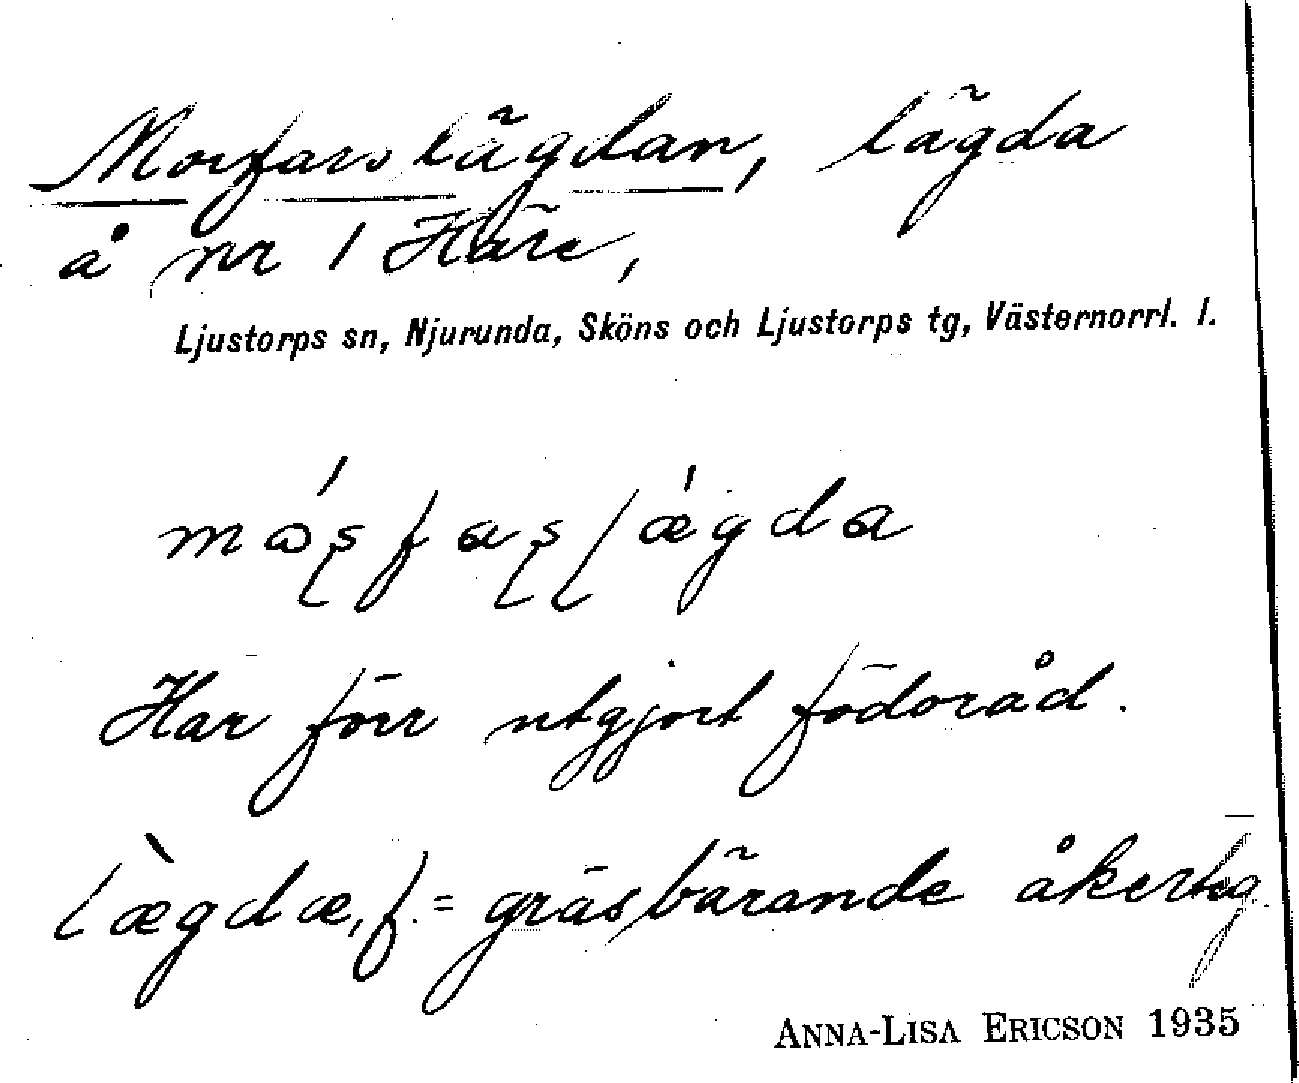 Morfarslägdan, lägda
å nr 1 Häre,
Ljustorps sn, Njurunda, Sköns och Ljustorps tg, Västernorrl. l.
Har förr utgjort födoråd.
lægdæ, f. = gräsbärande åkerteg.
ANNA-LISA ERICSON 1935